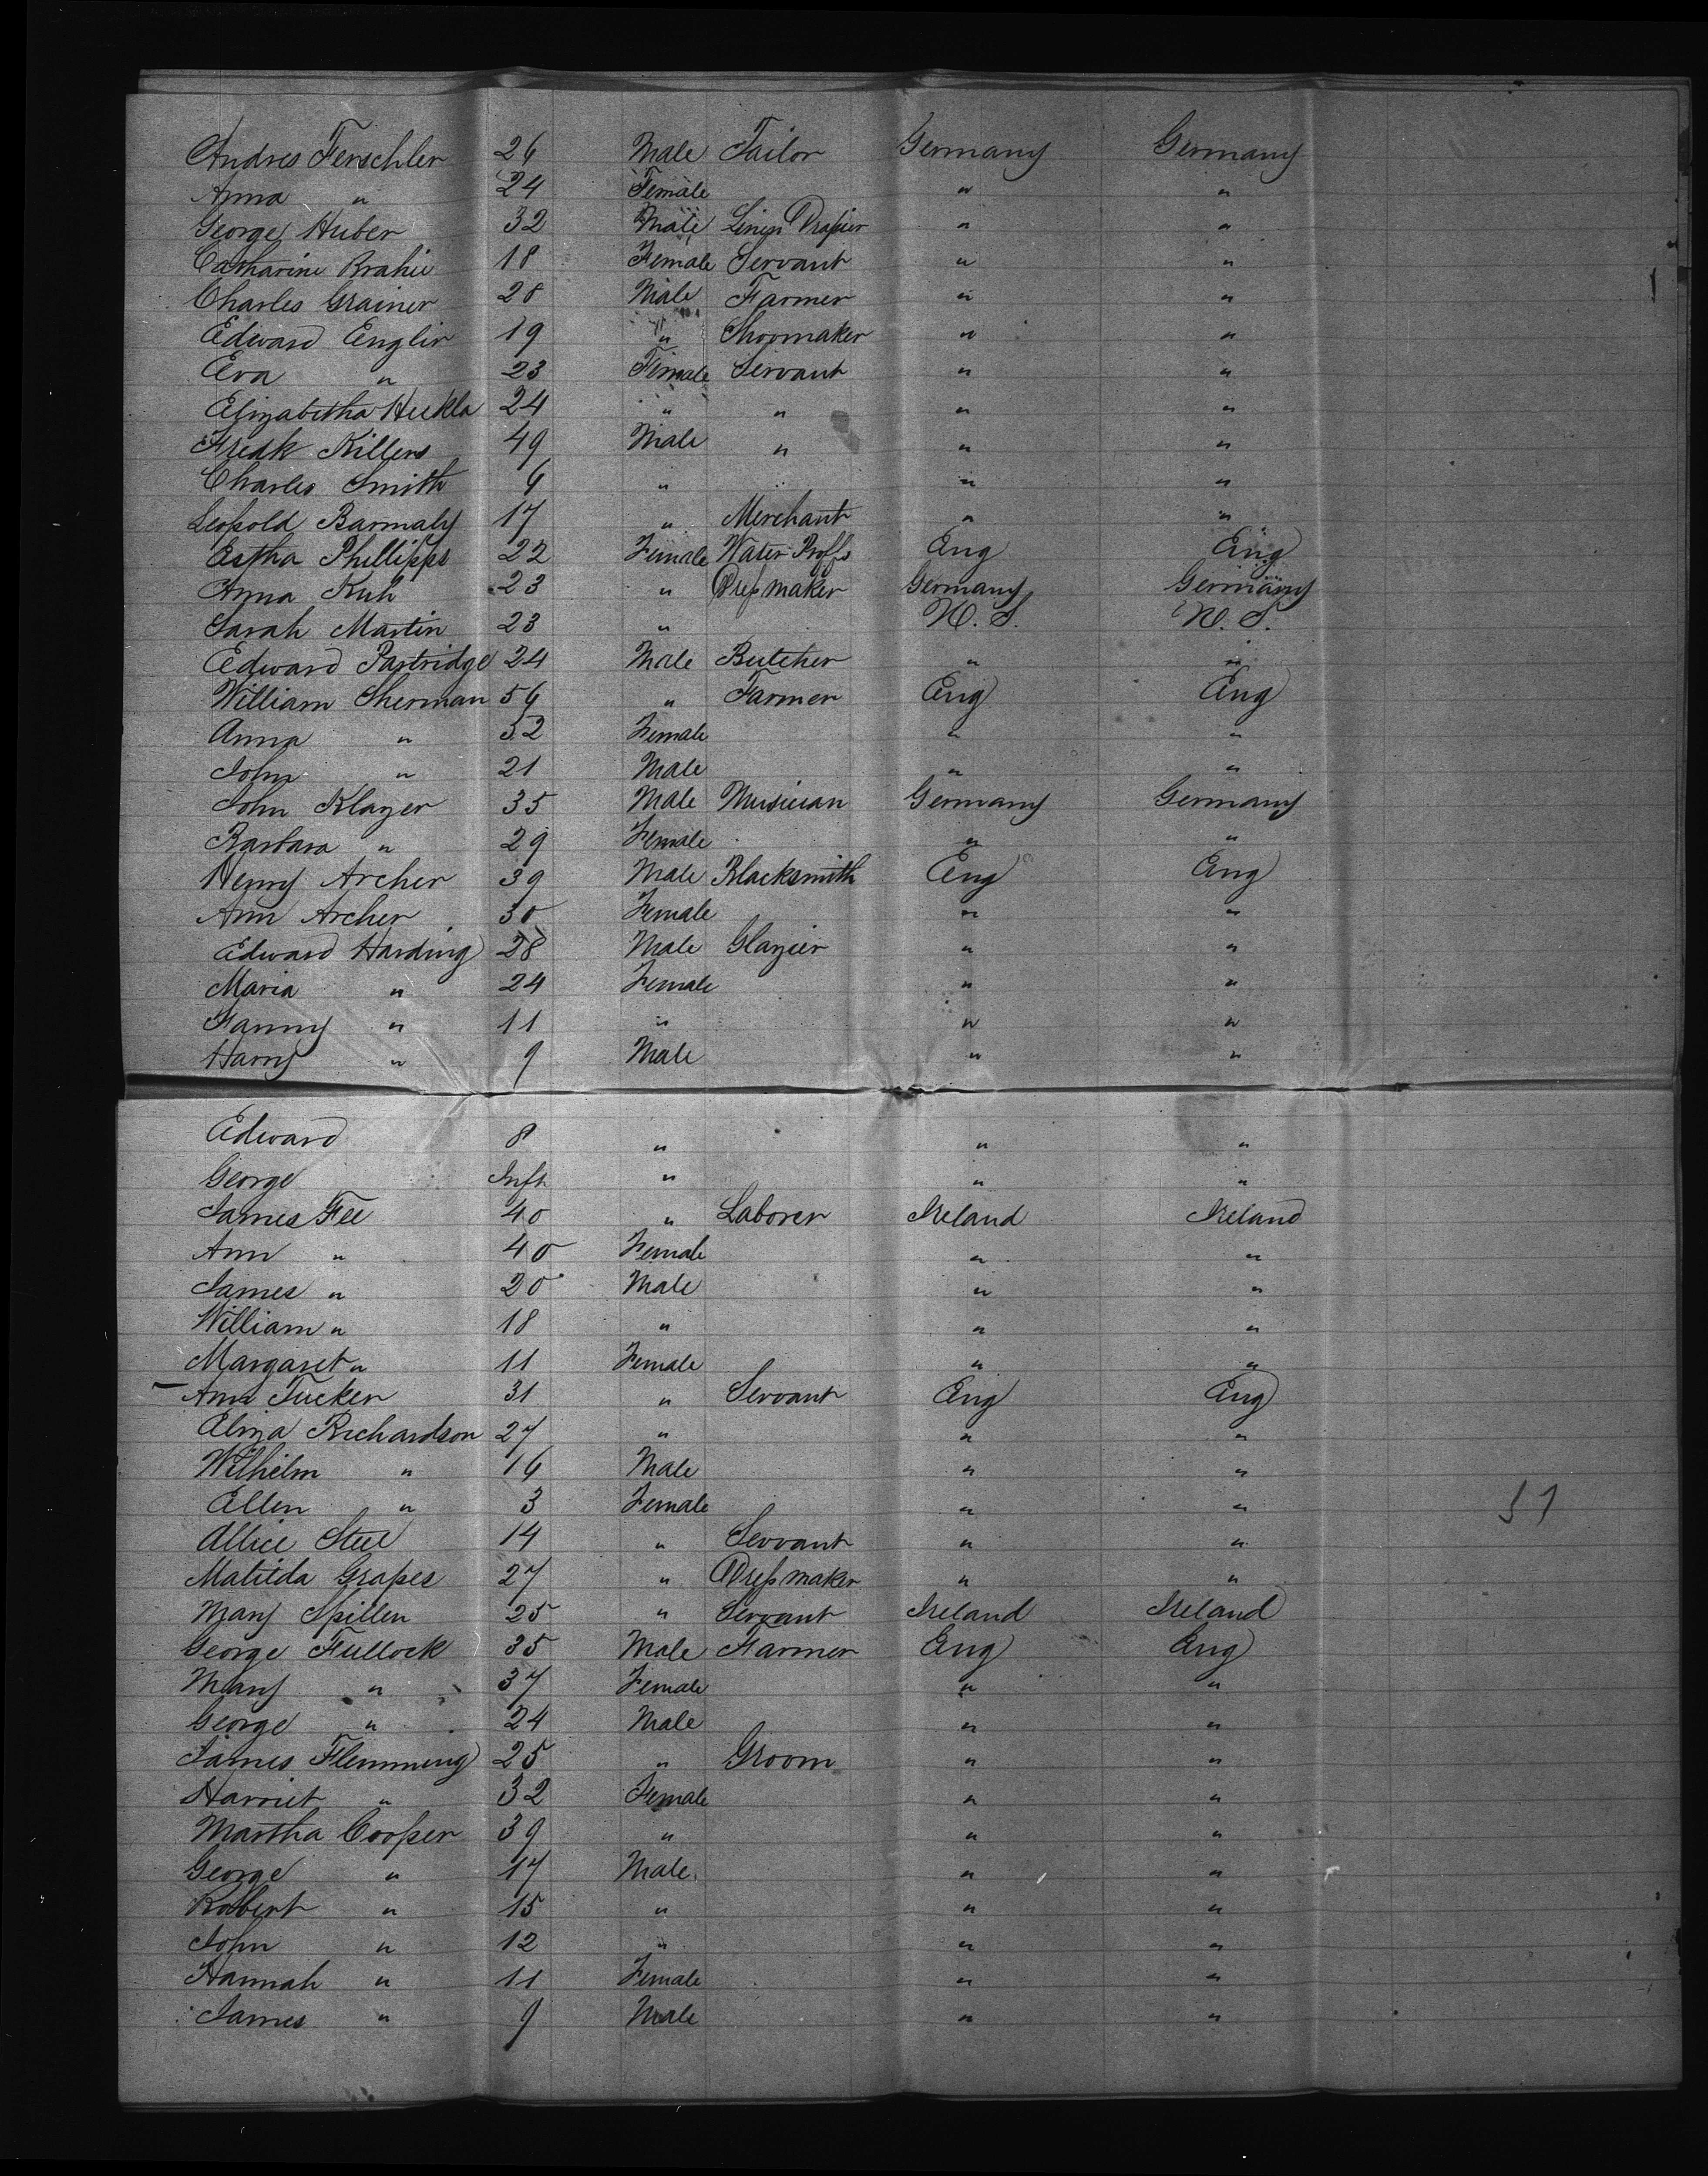 Andres Fenschler 26 Male Tailor Germany Germany
Anna " 24 Female " "
George Huber 32 Male Linen Drapier " "
Catharine Brahie 18 Female Servant " "
Charles Grainer 28 Male Farmer " "
Edward Englir 19 " Shoomaker " "
Eva " 23 Female Servant " "
Elizabetha Hukla 24 " " " "
Fredk Killens 49 Male " " "
Charles Smith 6 " " " "
Leopold Barmaly 17 " Merchant " "
Estha Phillipps 22 Female Water Proffs Eng Eng
Anna Kuh 23 " Dressmaker Germany Germany
Sarah Martin 23 " U.S. U.S.
Edward Partridge 24 Male Butcher " "
William Sherman 56 " Farmer Eng Eng
Anna " 52 Female " "
John " 21 Male " "
John Klazer 35 Male Musician Germany Germany
Barbara " 29 Female " "
Henry Archer 39 Male Blacksmith Eng Eng
Ann Archer 30 Female " "
Edward Harding 28 Male Glazier " "
Maria " 24 Female " "
Fanny " 11 " " "
Harry " 9 Male " "
Edward 8 " " "
George Inft " " "
James Fee 40 " Laborer Ireland Ireland
Ann " 40 Female " "
James " 20 Male " "
William " 18 " " "
Margaret " 11 Female " "
Ann Tucker 31 " Servant Eng Eng
Eliza Richardson 27 " " "
Wilhelm " 16 Male " "
Ellen " 3 Female " "
Allice Steel 14 " Servant " "
Matilda Grapes 27 " Dressmaker " "
Mary Spillen 25 " Servant Ireland Ireland
George Fullock 35 Male Farmer Eng Eng
Mary " 37 Female " "
George " 24 Male " "
James Flemming 25 " Groom " "
Harriet " 32 Female " "
Martha Cooper 39 " " "
George " 17 Male " "
Robert " 15 " " "
John " 12 " " "
Hannah " 11 Female " "
James " 9 Male " "